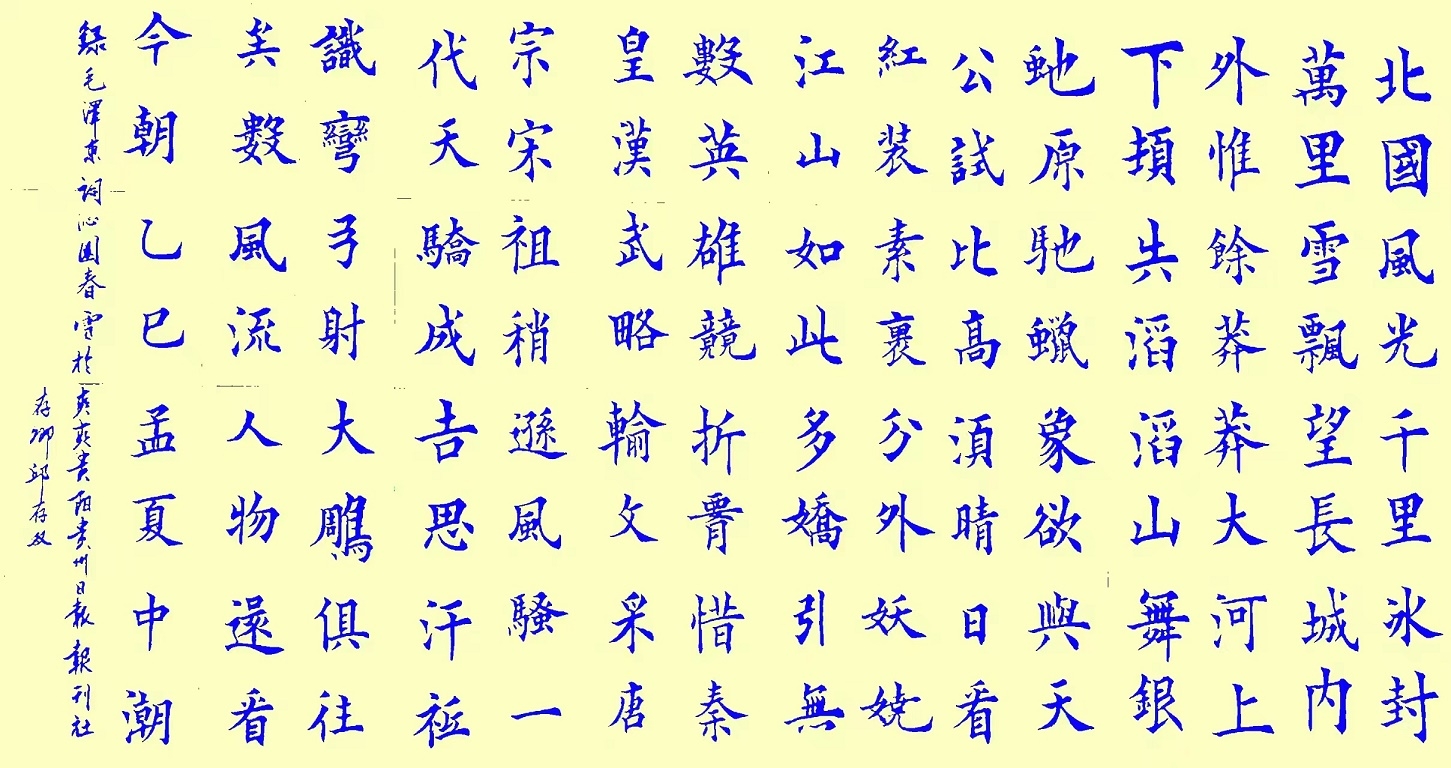 北國風光千里冰封
萬里雪飄望長城内
外惟餘莽莽大河上
下頓失滔滔山舞銀
虵原馳蠟象欲與天
公試比高湏晴日看
紅装素裹分外妖娆
江山如此多嬌引無
數英雄競折腰惜秦
皇漢武略輸文采唐
宗宋祖稍遜風騷一
代天驕成吉思汗祗
識彎弓射大鵰俱往
矣數風流人物還看
今朝乙巳孟夏中潮
録毛澤東詞沁園春雪於爽爽貴陽貴州日報報刊社
存卿邱存双